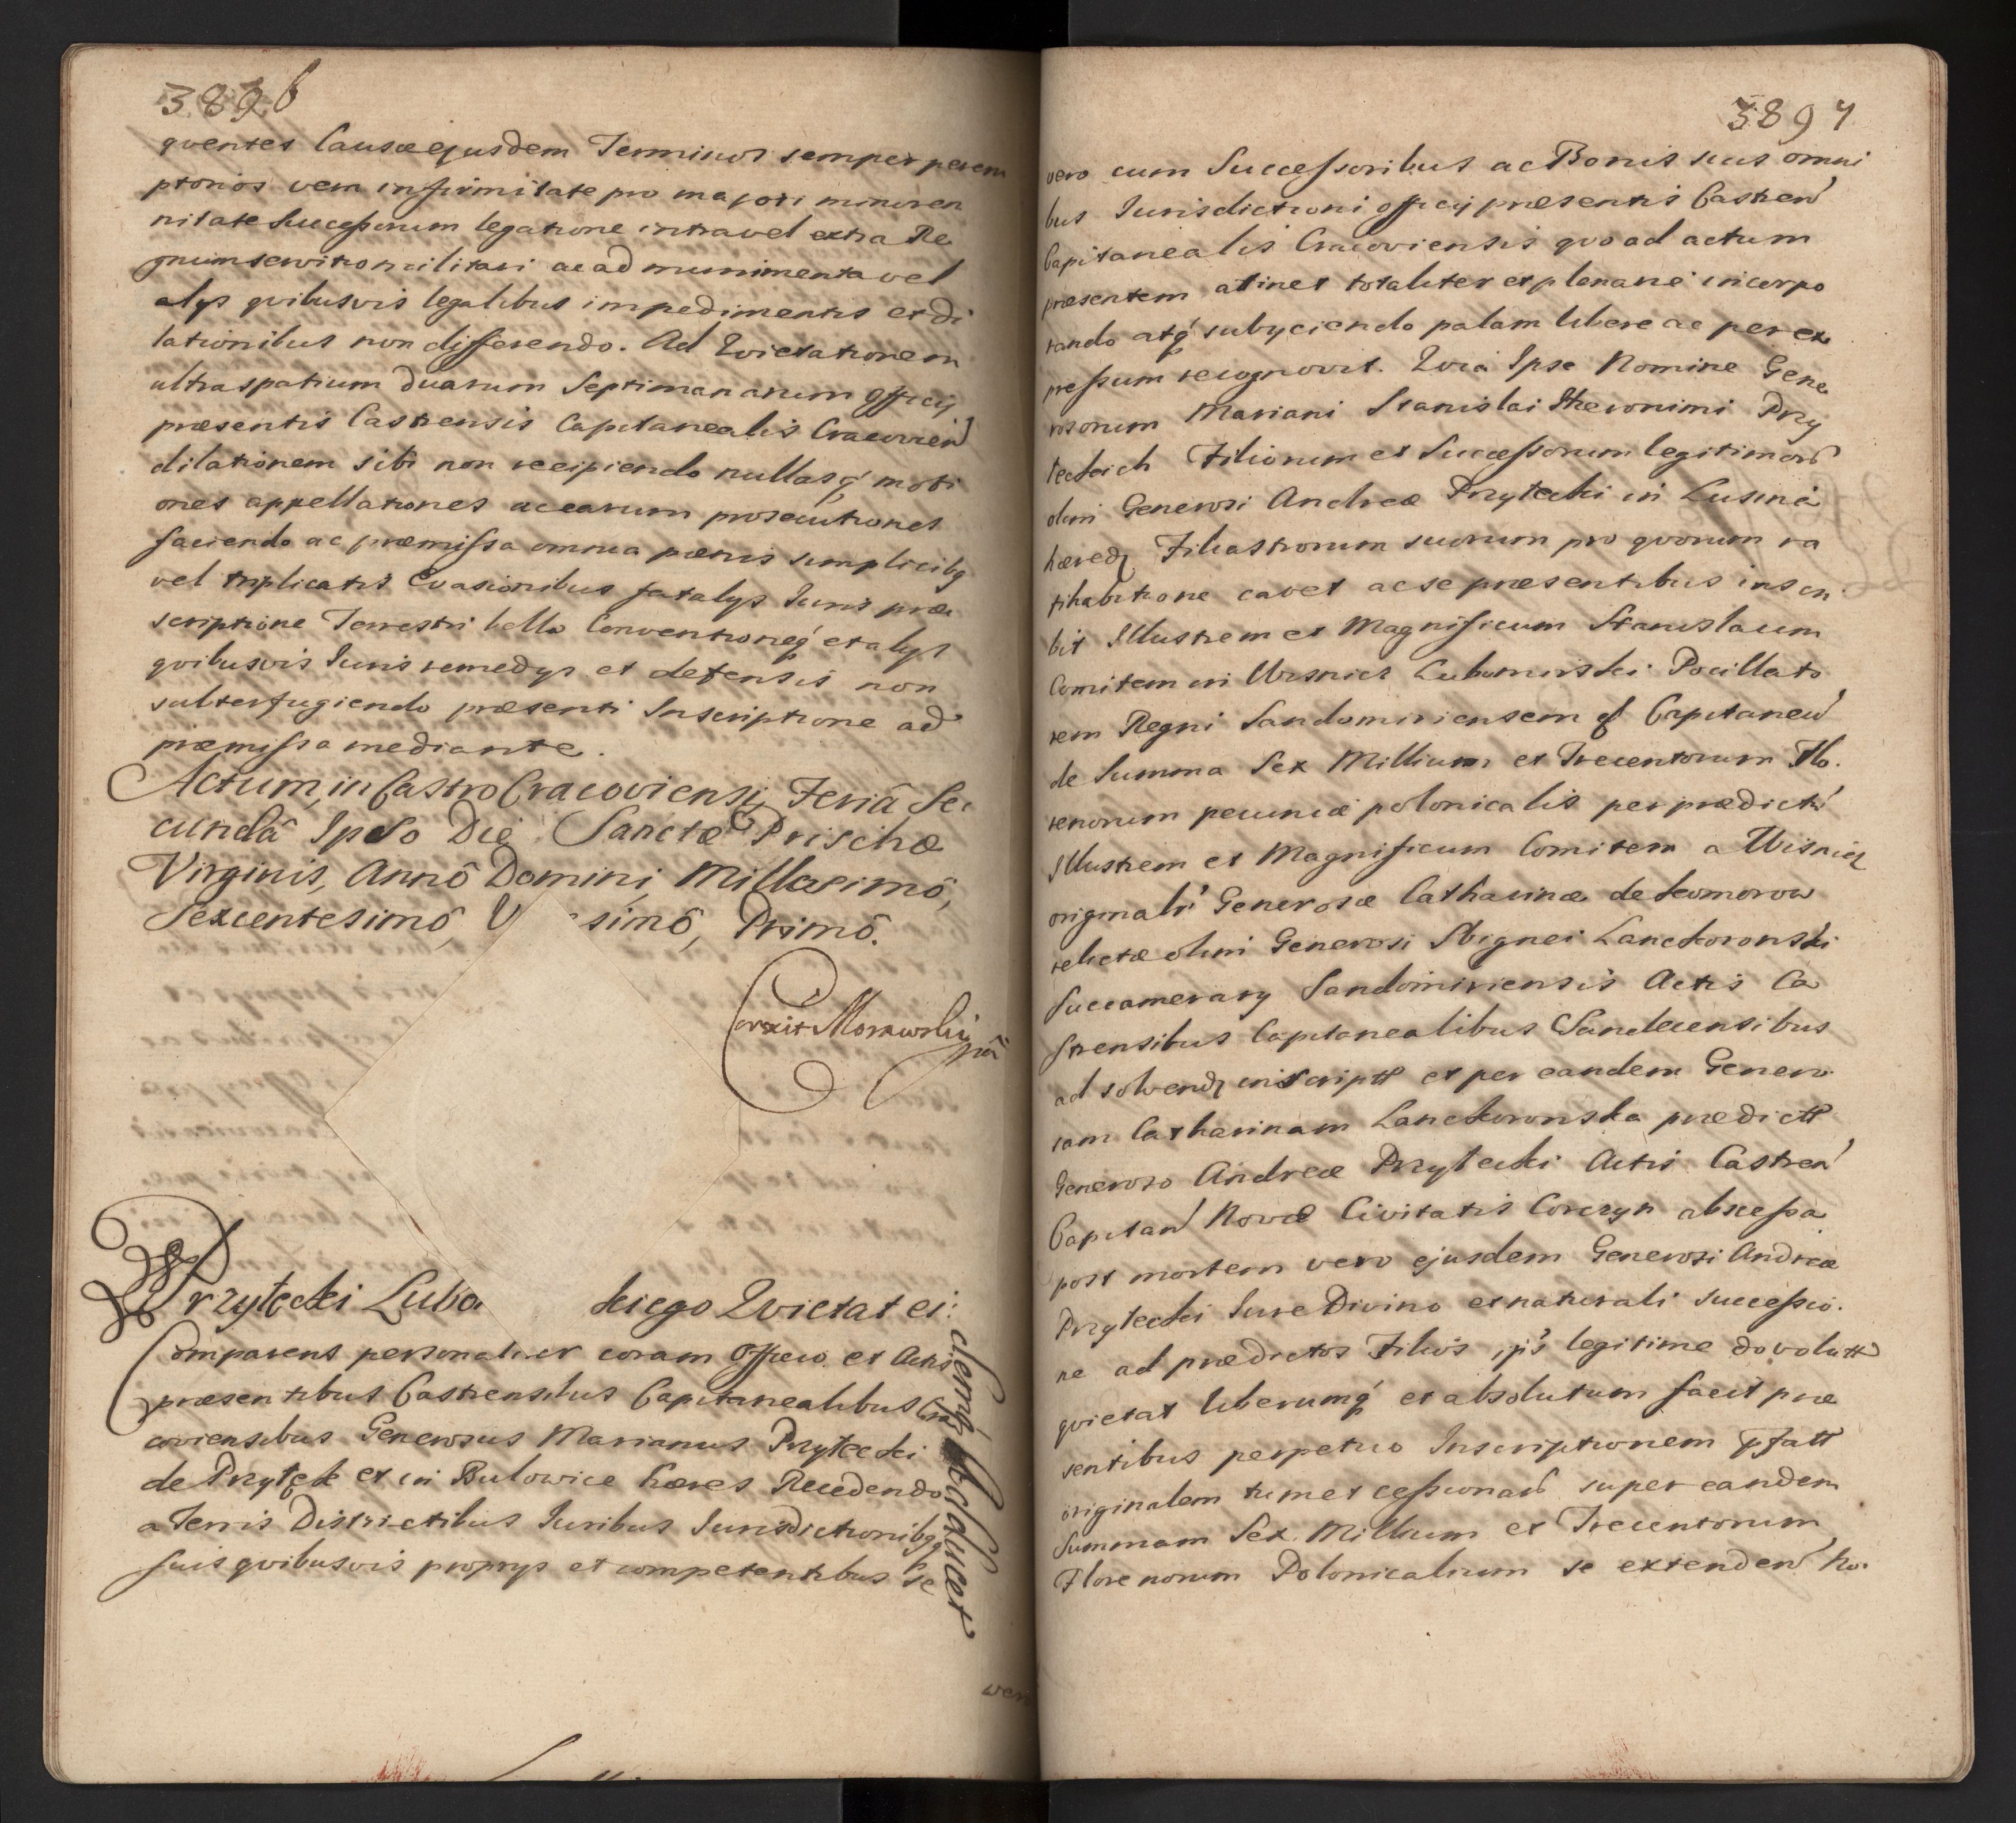 3896
quentes Causae ejusdem Terminos semper perem
ptorios vera infirmitate pro majori minoren
nitate Successorum legatione intra vel extra Re
gnum servitio militari ac ad munimenta vel
alys quibusvis legalibus impedimentis et di
lationibus non differendo. Ad Quietationem
ultra spatium duarum Septimanarum Officij
praesentis Castrensis Capitanealis Cracovien
dilationem sibi non recipiendo nullasq́ moti
ones appellationes ac earum prosecutiones
faciendo ac praemissa omnia paenis simplicibq
vel triplicatis Evasionibus fatalys Iuris prae
scriptione Terrestri bello Conventioneq́ et alys
quibusvis Iuris remedys et defensis non
subterfugiendo praesenti Inscriptione ad
praemissa mediante.
Actum in Castro Cracoviensi, Feriâ Se
cundâ Ipso Die Sanctæ Prischæ
Virginis, Annô Domini Millesimô,
Sexcentesimô, V simô, Primô.
Corexit Morawski
Przyłęcki Lubo kiego Quietat ei:
demq́ Abducet
Comparens personaliter coram Officio et Actis
praesentibus Castrensibus Capitanealibus Cra
coviensibus Generosus Marianus Przyłecki
de Przyłęk et in Bulowice haeres Recedendo
a Terris Districtibus Iuribus Iurisdictionibq
suis quibusvis proprys et competentibus se
vero
3897
vero cum Successoribus ac Bonis suis omni
bus Iurisdictioni officij praesentis Castren
Capitanealis Cracoviensis quo ad actum
praesentem atinet totaliter et plenarie incorpo
rando atq́ subyciendo palam libere ac per ex
pressum recognovit. Quia Ipse Nomine Gene
rosorum Mariani Stanislai Hieronimi Przy
leckich Filiorum et Successorum legitimorum
olim Generosi Andreae Przyłecki in Lusina
haered Filiastrorum suorum pro quorum ra
tihabitione cavet ac se praesentibus inscri
bit Illustrem et Magnificum Stanislaum
Comitem in Wisnicz Lubomirski Pocillato
rem Regni Sandomiriensem & Capitaneu
de Summa Sex Millium et Trecentorum Flo.
renorum pecuniae polonicalis per praedictu
Illustrem et Magnificum Comitem a Wisnicz
originalr Generosae Catharinae de Komorow
relictae olim Generosi Sbignei Lanckoronski
Succamerary Sandomiriensis Actis Ca
strensibus Capitanealibus Sandecensibus
ad solvend inscriptt et per eandem Genero
sam Catharinam Lanckoronska praedictt
Generoso Andreae Przyłecki Actis Castren
Capitan Novae Civitatis Corczyn abscessa
post mortem vero ejusdem Generosi Andreae
Przyłecki Iure Divino et naturali successio
ne ad praedictos Filios ips legitime dovolutt
quietat liberumq́ et absolutum facit prae
sentibus perpetuo Inscriptionem pfatt
originalem tum et cessionar super eandem
Summam Sex Millium et Trecentorum
Florenorum Polonicalium se extenden ho.